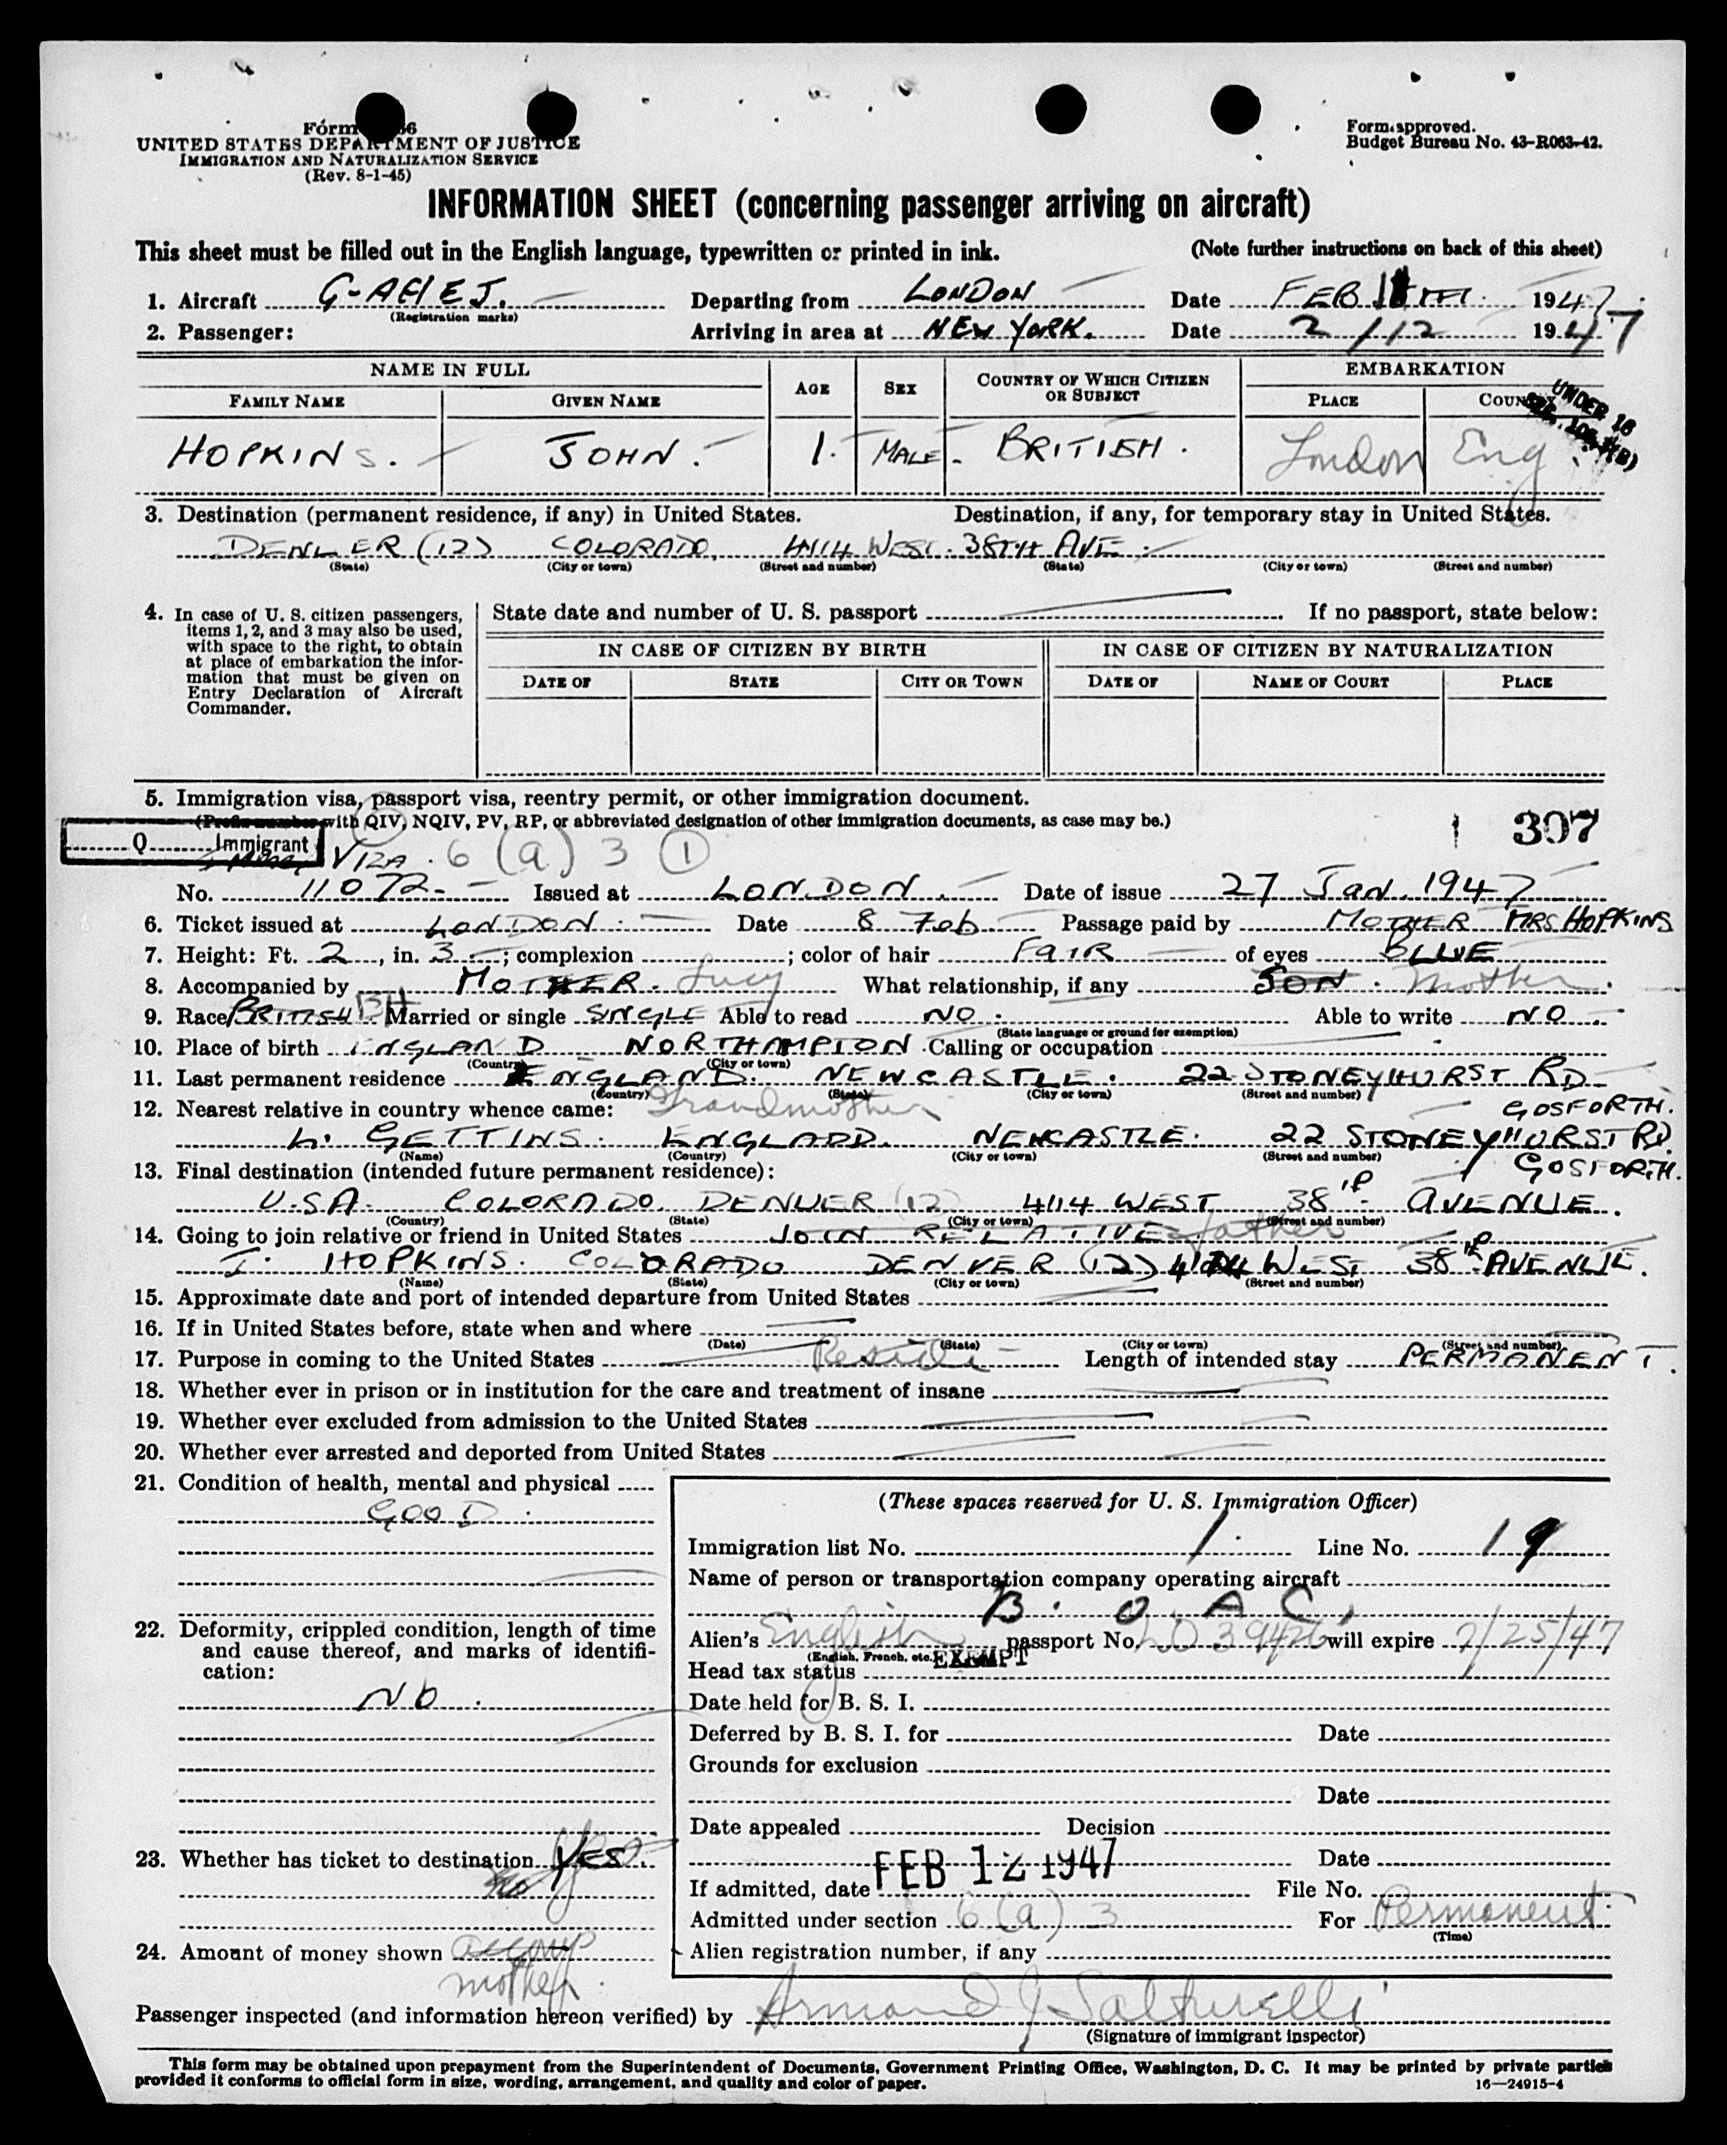 Form
UNITED STATES DEPARTMENT OF JUSTICE
IMMIGRATION AND NATURALIZATION SERVICE
(Rev. 8-1-45)
Form approved.
Budget Bureau No. 43-R063-42.
INFORMATION SHEET (concerning passenger arriving on aircraft)
This sheet must be filled out in the English language, typewritten or printed in ink. (Note further instructions on back of this sheet)
1. Aircraft G-AHEJ. Departing from LONDON Date FEB 11TH 1947.
(Registration marks)
2. Passenger: Arriving in area at NEW YORK. Date 2/12 1947
NAME IN FULL AGE SEX COUNTRY OF WHICH CITIZEN OR SUBJECT EMBARKATION
FAMILY NAME GIVEN NAME PLACE COUNTRY
UNDER 16
HOPKINS. JOHN. 1. MALE. BRITISH. London Eng
3. Destination (permanent residence, if any) in United States. Destination, if any, for temporary stay in United States.
DENVER (12) COLORADO, 4114 WEST. 38TH AVE.
(State) (City or town) (Street and number) (State) (City or town) (Street and number)
4. In case of U. S. citizen passengers, items 1, 2, and 3 may also be used, with space to the right, to obtain at place of embarkation the information that must be given on Entry Declaration of Aircraft Commander.
State date and number of U. S. passport If no passport, state below:
IN CASE OF CITIZEN BY BIRTH IN CASE OF CITIZEN BY NATURALIZATION
DATE OF STATE CITY OR TOWN DATE OF NAME OF COURT PLACE
5. Immigration visa, passport visa, reentry permit, or other immigration document.
(Prefix number with QIV, NQIV, PV, RP, or abbreviated designation of other immigration documents, as case may be.) 1 307
Q Immigrant VIZA. 6 (a) 3 (1)
No. 11072. Issued at LONDON. Date of issue 27 Jan. 1947
6. Ticket issued at LONDON. Date 8 Feb Passage paid by MOTHER MRS HOPKINS
7. Height: Ft. 2, in. 3; complexion ; color of hair FAIR of eyes BLUE
8. Accompanied by MOTHER. Lucy What relationship, if any SON. Mother.
9. Race BRITISH Married or single SINGLE Able to read NO. Able to write NO.
(State language or ground for exemption)
10. Place of birth ENGLAND NORTHAMPTON. Calling or occupation
(Country) (City or town)
11. Last permanent residence ENGLAND. NEWCASTLE. 22 STONEYHURST RD
(Country) (State) (City or town) (Street and number)
12. Nearest relative in country whence came: Grandmother GOSFORTH.
L. GETTINS. ENGLAND. NEWCASTLE. 22 STONEYHURST RD.
(Name) (Country) (City or town) (Street and number)
13. Final destination (intended future permanent residence): GOSFORTH.
U.S.A. COLORADO. DENVER (12) 4114 WEST 38th AVENUE.
(Country) (State) (City or town) (Street and number)
14. Going to join relative or friend in United States JOIN RELATIVE. father
HOPKINS. COLORADO DENVER (12) WEST 38th AVENUE.
(Name) (State) (City or town) (Street and number)
15. Approximate date and port of intended departure from United States
16. If in United States before, state when and where
(Date) (State) (City or town) (Street and number)
17. Purpose in coming to the United States Reside Length of intended stay PERMANENT.
18. Whether ever in prison or in institution for the care and treatment of insane
19. Whether ever excluded from admission to the United States
20. Whether ever arrested and deported from United States
21. Condition of health, mental and physical
GOOD.
22. Deformity, crippled condition, length of time and cause thereof, and marks of identification:
NO.
23. Whether has ticket to destination YES.
no
24. Amount of money shown accomp
mother.
(These spaces reserved for U. S. Immigration Officer)
Immigration list No. 1. Line No. 19
Name of person or transportation company operating aircraft
B. O. A. C.
Alien's English passport No. LO39426 will expire 7/25/47
(English, French, etc.)
Head tax status EXEMPT
Date held for B. S. I.
Deferred by B. S. I. for Date
Grounds for exclusion
Date
Date appealed Decision
Date
If admitted, date FEB 12 1947 File No.
Admitted under section 6(a)3 For Permanent
(Time)
Alien registration number, if any
Passenger inspected (and information hereon verified) by Armand J
(Signature of immigrant inspector)
This form may be obtained upon prepayment from the Superintendent of Documents, Government Printing Office, Washington, D. C. It may be printed by private parties
provided it conforms to official form in size, wording, arrangement, and quality and color of paper. 16—24915-4